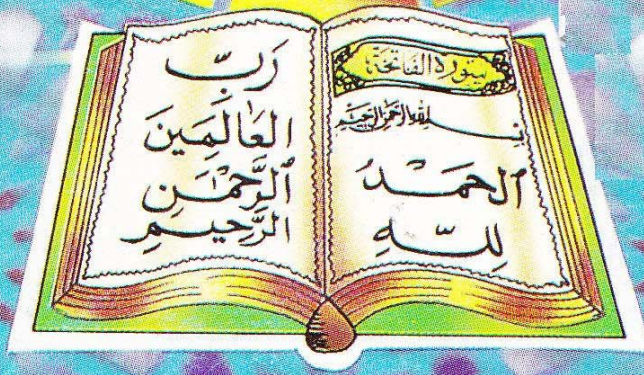 سورة الفاتحة
بسم الله الرحمن الرحيم
ٱلحَمْدُ
لِلَّهِ
رَبِّ
العَالَمِينَ
ٱلرَّحْمَٰنِ
الرَّحِيمِ